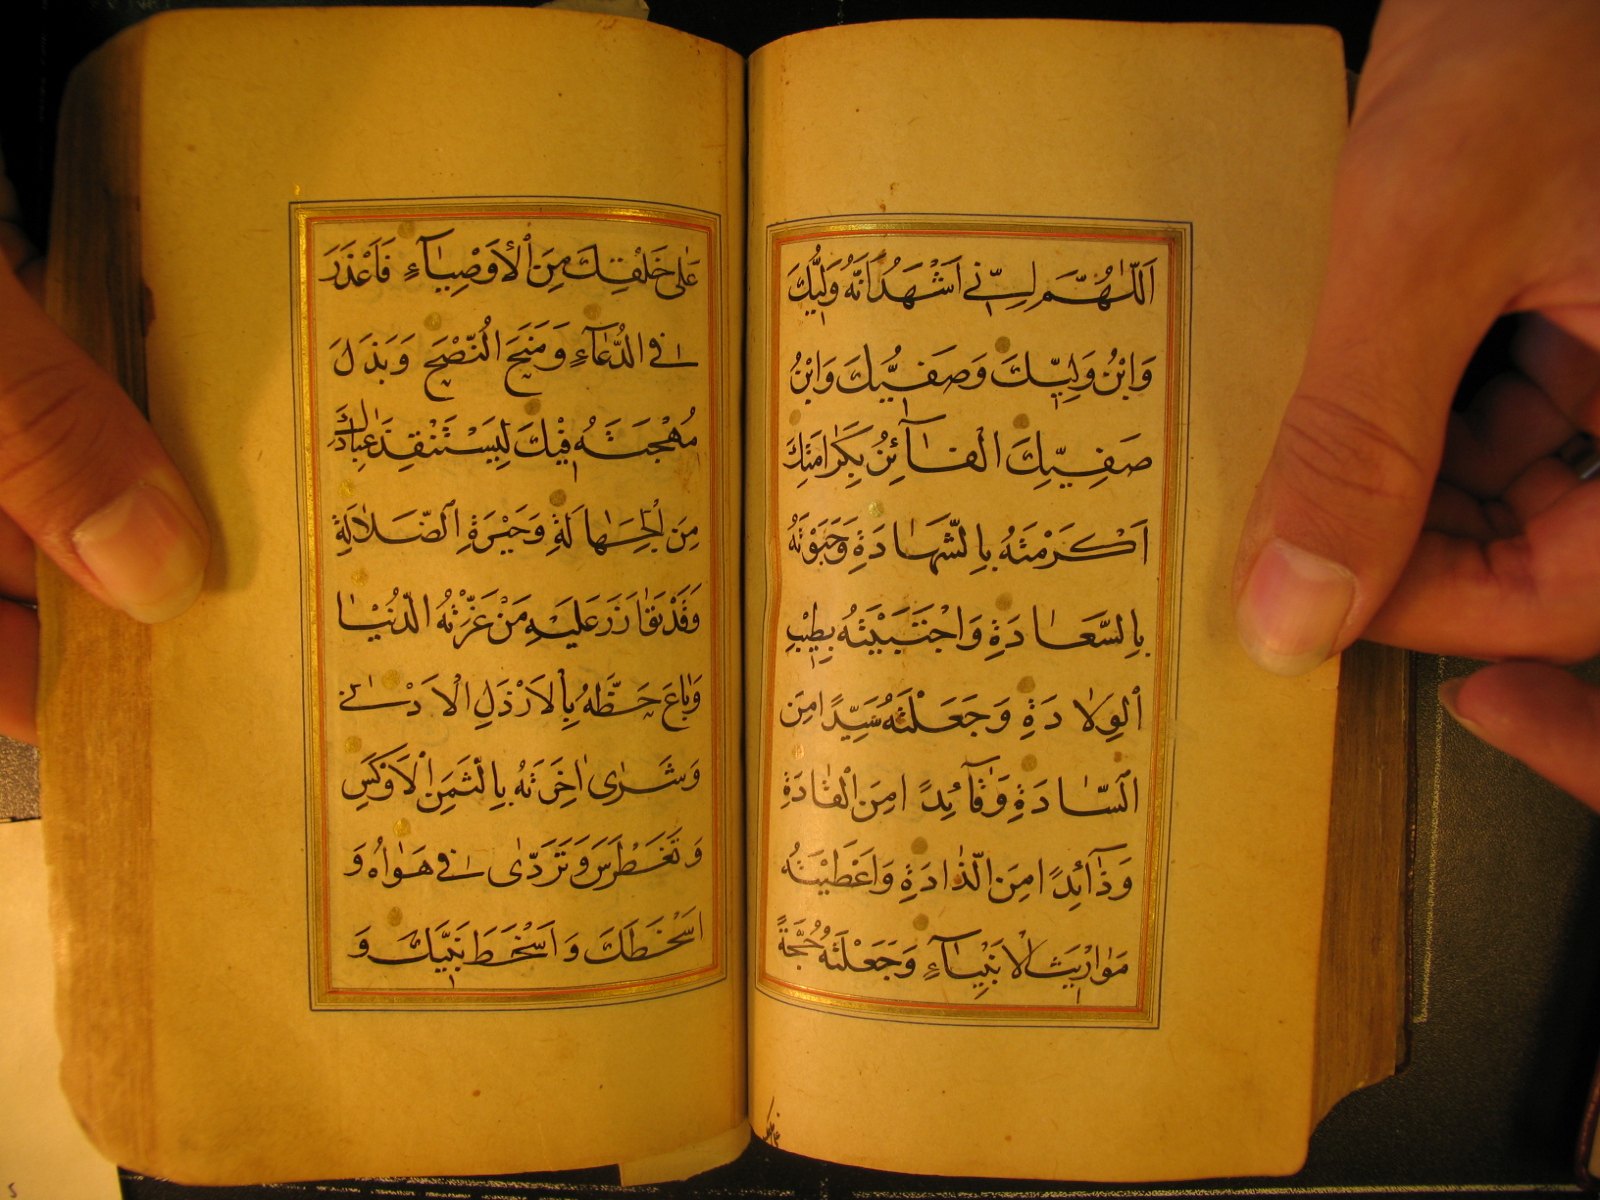 اَللّٰهُمَّ اِنّٖي اَشْهَدُ اَنَّهُ وَلِيُّكَ
وَابْنُ وَلِيِّكَ وَصَفِيُّكَ وَابْنُ
صَفِيِّكَ الْفَآئِزُ بِكَرَامَتِكَ
اَكْرَمْتَهُ بِالشَّهَادَةِ وَحَبَوْتَهُ
بِالسَّعَادَةِ وَاجْتَبَيْتَهُ بِطِيْبِ
الْوِلَادَةِ وَجَعَلْتَهُ سَيِّدًا مِنَ
السَّادَةِ وَقَآئِدًا مِنَ الْقَادَةِ
وَذَآئِدًا مِنَ الذَّادَةِ وَاَعْطَيْتَهُ
مَوَارِيْثَ الْاَنْبِيَآءِ وَجَعَلْتَهُ حُجَّةً
عَلٰى خَلْقِكَ مِنَ الْاَوْصِيَآءِ فَاَعْذَرَ
فِي الدُّعَآءِ وَمَنَحَ النُّصْحَ وَبَذَلَ
مُهْجَتَهُ فِيْكَ لِيَسْتَنْقِذَ عِبَادَكَ
مِنَ الْجَهَالَةِ وَحَيْرَةِ الضَّلَالَةِ
وَقَدْ تَوَازَرَ عَلَيْهِ مَنْ غَرَّتْهُ الدُّنْيَا
وَبَاعَ حَظَّهُ بِالْاَرْذَلِ الْاَدْنٰى
وَشَرٰى اٰخِرَتَهُ بِالثَّمَنِ الْاَوْكَسِ
وَتَغَطْرَسَ وَتَرَدّٰى فِي هَوَاهُ وَ
اَسْخَطَكَ وَاَسْخَطَ نَبِيَّكَ وَ